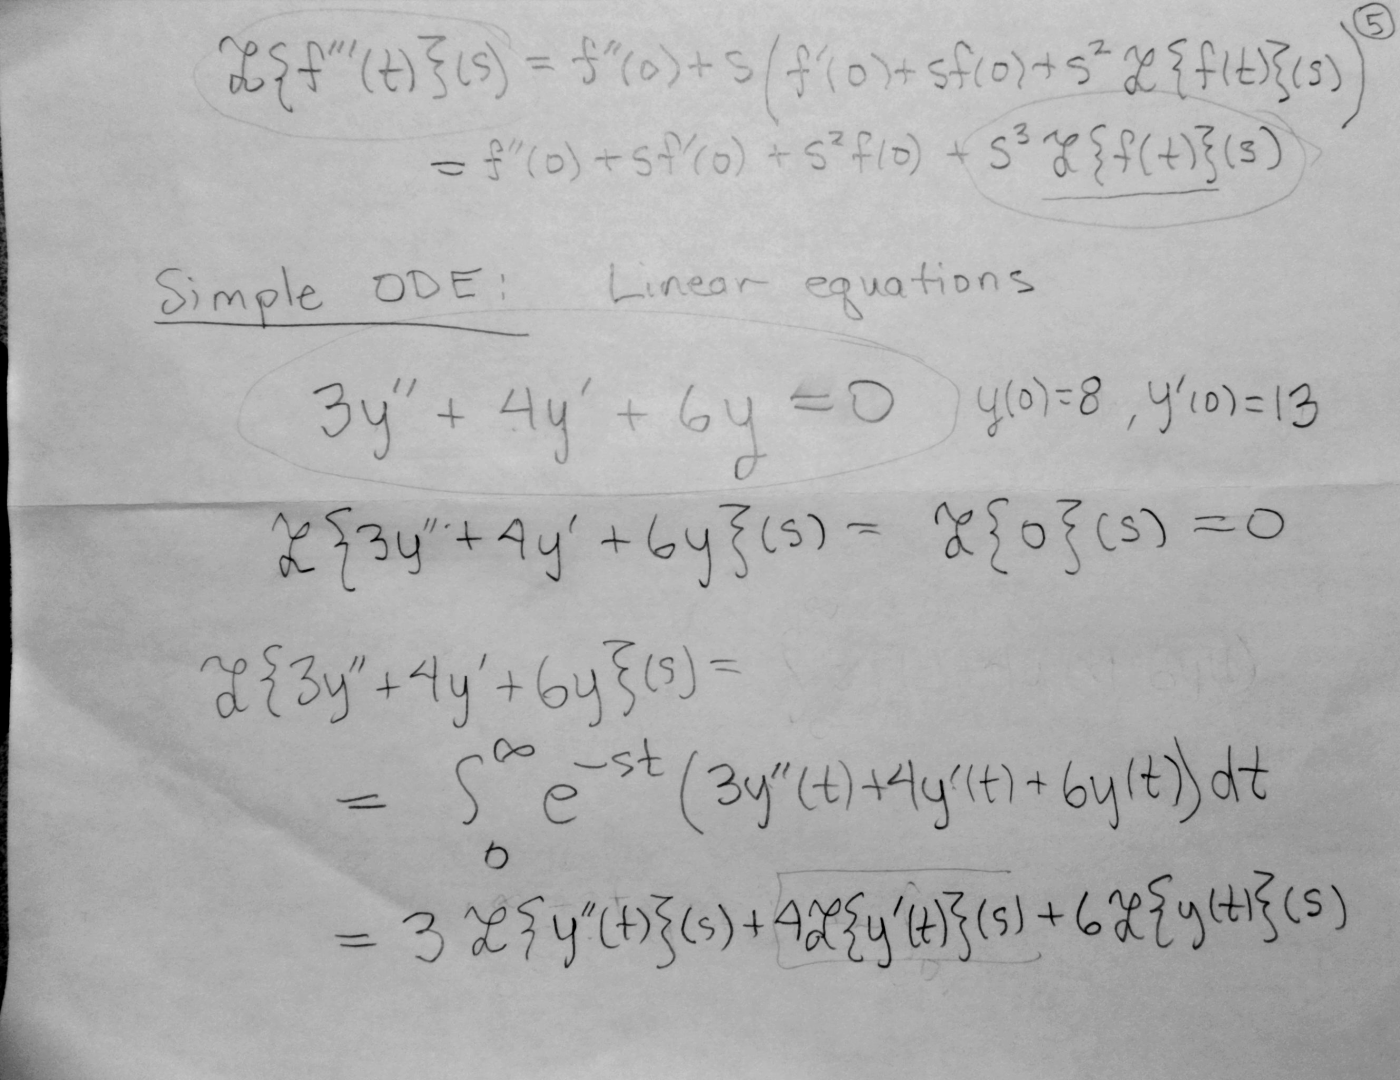 ⑤
ℒ{f'''(t)}(s) = f''(0) + s(f'(0) + sf(0) + s² ℒ{f(t)}(s))
= f''(0) + sf'(0) + s²f(0) + s³ ℒ{f(t)}(s)
Simple ODE: Linear equations
3y'' + 4y' + 6y = 0 y(0)=8, y'(0)=13
ℒ{3y'' + 4y' + 6y}(s) = ℒ{0}(s) = 0
ℒ{3y'' + 4y' + 6y}(s) =
= ∫₀^∞ e^{-st} (3y''(t) + 4y'(t) + 6y(t)) dt
= 3 ℒ{y''(t)}(s) + 4ℒ{y'(t)}(s) + 6ℒ{y(t)}(s)